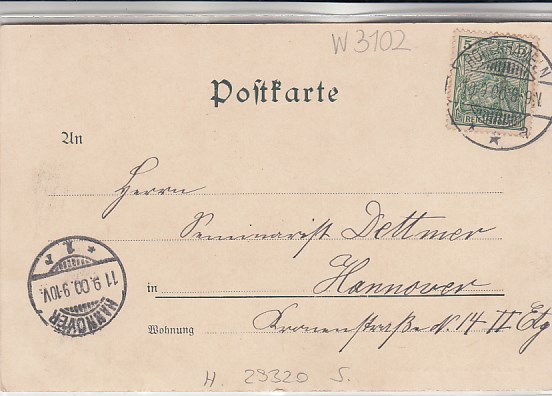 W 3102
Postkarte
5
An
Herrn
Seminarist Dettmer
in Hannover
Wohnung Kronenstraße N. 14 II Etg
HANNOVER
11.9.00.9-10V.
* 1 r
H. 29320 S.